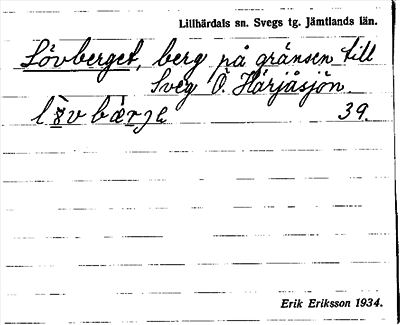 Lillhärdals sn. Svegs tg. Jämtlands län.
Lövberget, berg på gränsen till
Sveg Ö. Härjåsjön.
39.
Erik Eriksson 1934.